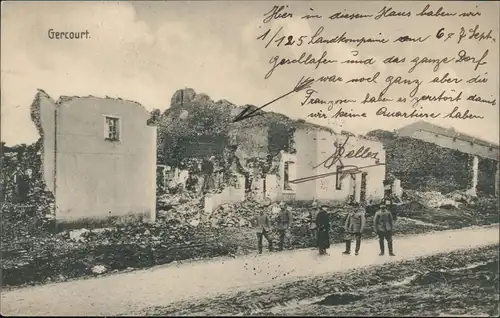 Gercourt.
Hier in diesem Hause haben wir
1/125 Landkompanie am 6 & 7 Sept.
geschlafen und das ganze Dorf
war noch ganz aber die
Franzosen haben es zerstört damit
wir keine Quartiere haben
Keller